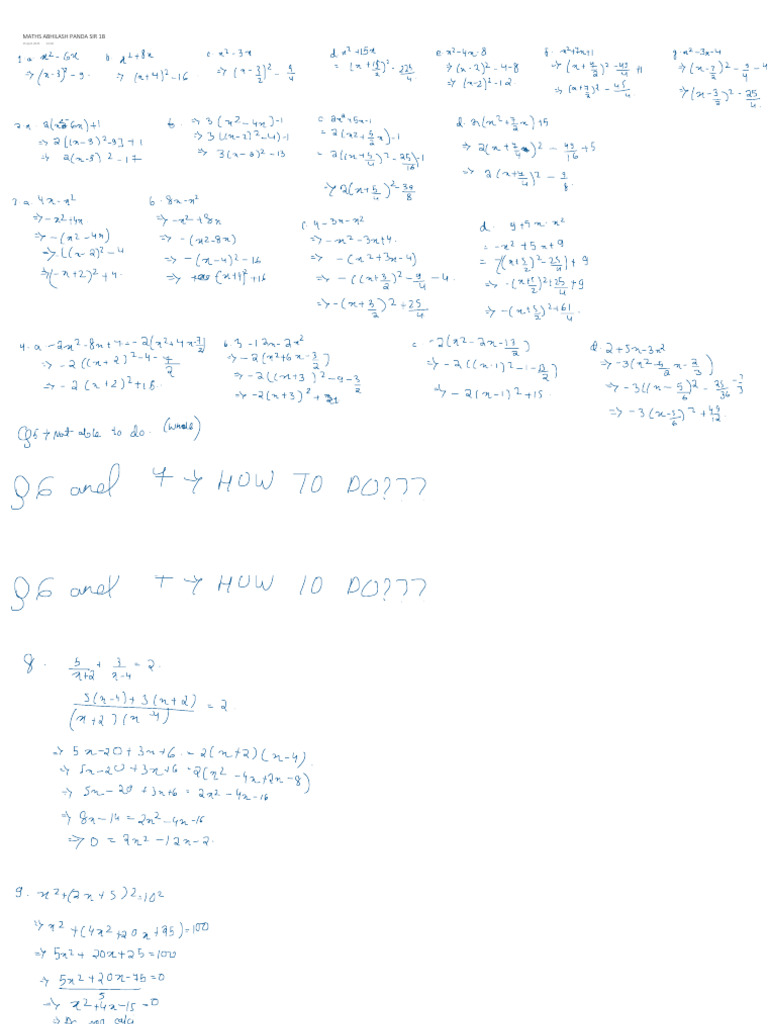 MATHS ABHILASH PANDA SIR 1B
1. a x² - 6x
⇒ (x-3)² - 9.
b. x² + 8x
⇒ (x+4)² - 16
c. x² - 3x
⇒ (x - 3/2)² - 9/4
d. x² + 15x
= (x + 15/2)² - 225/4
e. x² - 4x - 8
⇒ (x-2)² - 4 - 8
⇒ (x-2)² - 12
g. x² - 3x - 4
2. a 2(x² - 6x) + 1
⇒ 2[(x-3)² - 9] + 1
⇒ 2(x-3)² - 17
b. ⇒ 3(x² - 4x) - 1
⇒ 3((x-2)² - 4) - 1
⇒ 3(x-2)² - 13
c 2x² + 5x - 1
= 2(x² + 5/2 x) - 1
= 2((x + 5/4)² - 25/16) - 1
⇒ 2(x + 5/4)² - 33/8
d. 2(x² + 7/2 x) + 5
⇒ 2(x + 7/4)² - 49/16 + 5
3. a 4x - x²
⇒ -x² + 4x
⇒ -(x² - 4x)
b. 8x - x²
⇒ -x² + 8x
⇒ -(x² - 8x)
⇒ -(x-4)² - 16
c 4 - 3x - x²
⇒ -x² - 3x + 4.
⇒ -(x² + 3x - 4)
⇒ -((x + 3/2)² - 9/4 - 4.
⇒ -(x + 3/2)² + 25/4
d. 9 + 5x - x²
= -x² + 5x + 9
⇒ -(x + 5/2)² + 61/4
⇒ -2(x+2)² + 16.
b. 3 - 12x - 2x²
⇒ -2(x² + 6x - 3/2)
⇒ -2((x+3)² - 9 - 3/2
⇒ -2(x+3)² + 21
c. -2(x² - 2x - 13/2)
⇒ -2((x-1)² - 1 - 13/2)
⇒ -2(x-1)² + 15.
d. 2 + 5x - 3x²
⇒ -3(x - 5/6)² + 49/12
Q5 → Not able to do. (whole)
Q6 and 7 → HOW TO DO???
Q6 and 7 → HOW TO DO???
8. 5/(x+2) + 3/(x-4) = 2.
5(x-4) + 3(x+2) / (x+2)(x-4) = 2
⇒ 5x - 20 + 3x + 6 = 2(x+2)(x-4).
⇒ 5x - 20 + 3x + 6 = 2(x² - 4x + 2x - 8)
⇒ 5x - 20 + 3x + 6 = 2x² - 4x - 16
⇒ 8x - 14 = 2x² - 4x - 16
⇒ 0 = 2x² - 12x - 2.
9. x² + (2x + 5)² = 10²
⇒ x² + (4x² + 20x + 25) = 100
⇒ 5x² + 20x + 25 = 100
⇒ 5x² + 20x - 75 = 0
5
⇒ x² + 4x - 15 = 0